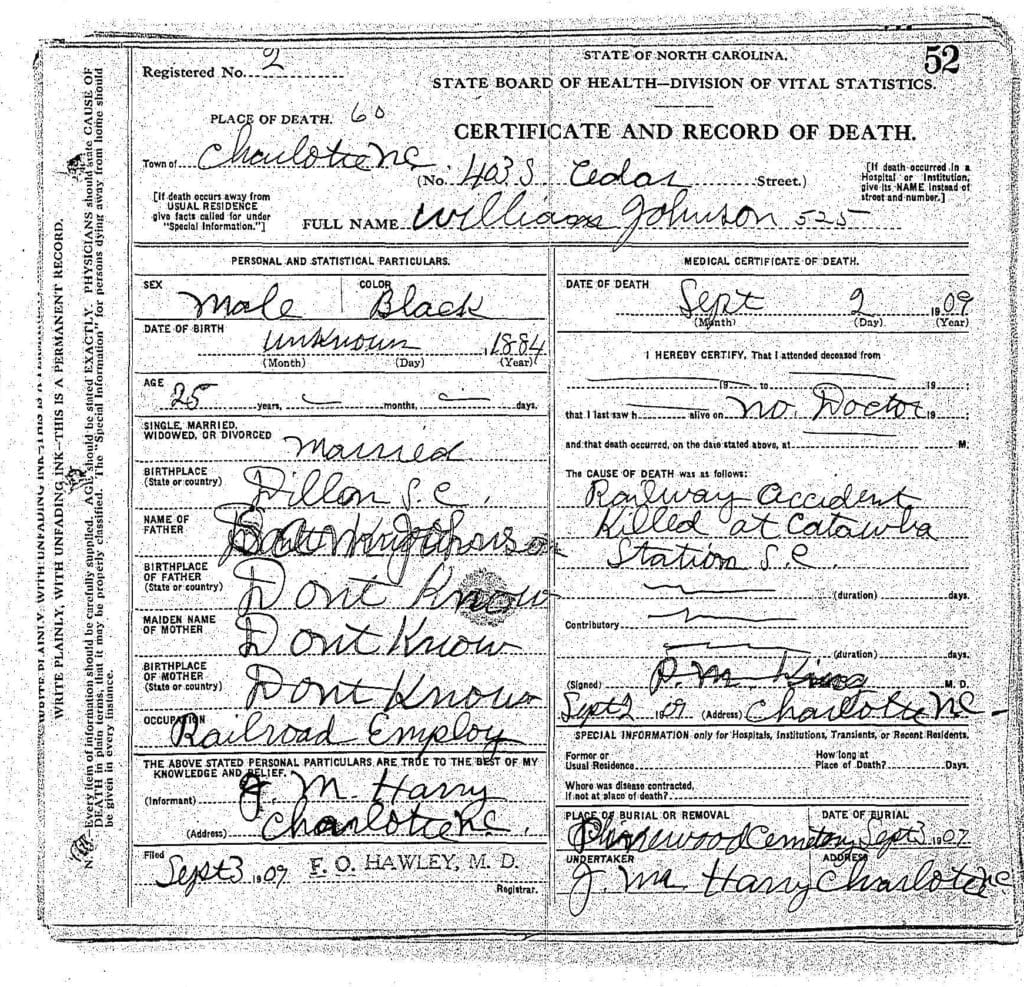 52
STATE OF NORTH CAROLINA.
STATE BOARD OF HEALTH—DIVISION OF VITAL STATISTICS.
Registered No. 2
PLACE OF DEATH. 60
CERTIFICATE AND RECORD OF DEATH.
Town of Charlotte NC. (No. 403 S. Cedar Street.)
[If death occurred in a Hospital or Institution, give its NAME instead of street and number.]
[If death occurs away from USUAL RESIDENCE give facts called for under "Special Information."]
FULL NAME William Johnson 525
PERSONAL AND STATISTICAL PARTICULARS.
SEX Male
COLOR Black
DATE OF BIRTH
Unknown, 1884
(Month) (Day) (Year)
AGE
25 years, months, days.
SINGLE, MARRIED,
WIDOWED, OR DIVORCED Married
BIRTHPLACE
(State or country) Dillon S.C.
NAME OF
FATHER
BIRTHPLACE
OF FATHER
(State or country) Dont Know
MAIDEN NAME
OF MOTHER Dont Know
BIRTHPLACE
OF MOTHER
(State or country) Dont Know
OCCUPATION
Railroad Employ
THE ABOVE STATED PERSONAL PARTICULARS ARE TRUE TO THE BEST OF MY
KNOWLEDGE AND BELIEF.
(Informant) J. M. Harry
(Address) Charlotte NC.
Filed
Sept 3 1909 F. O. HAWLEY, M. D.
Registrar.
MEDICAL CERTIFICATE OF DEATH.
DATE OF DEATH
Sept 2 1909
(Month) (Day) (Year)
I HEREBY CERTIFY, That I attended deceased from
19 to 19 ;
that I last saw h alive on No. Doctor 19 ;
and that death occurred, on the date stated above, at M.
The CAUSE OF DEATH was as follows:
Railway accident
Killed at Catawba
Station S.C.
(duration) days.
Contributory
(duration) days.
(Signed) P. M. King M. D.
Sept 2 1909 (Address) Charlotte NC
SPECIAL INFORMATION only for Hospitals, Institutions, Transients, or Recent Residents.
Former or
Usual Residence
How long at
Place of Death? Days.
Where was disease contracted,
If not at place of death?
PLACE OF BURIAL OR REMOVAL
DATE OF BURIAL
Pinewood Cemetery Sept 3 1907
UNDERTAKER
ADDRESS
J. M. Harry Charlotte NC
WRITE PLAINLY, WITH UNFADING INK—THIS IS A PERMANENT RECORD.
N. B.—Every item of information should be carefully supplied. AGE should be stated EXACTLY. PHYSICIANS should state CAUSE OF
DEATH in plain terms, that it may be properly classified. The "Special Information" for persons dying away from home should
be given in every instance.